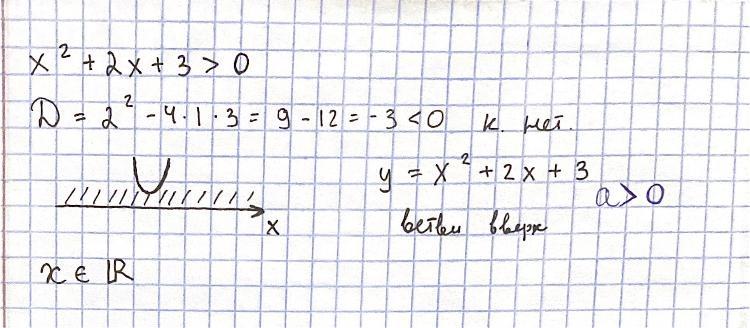 x² + 2x + 3 > 0
D = 2² - 4·1·3 = 9 - 12 = -3 < 0 к. нет.
y = x² + 2x + 3
a > 0
ветви вверх
x
x ∈ ℝ